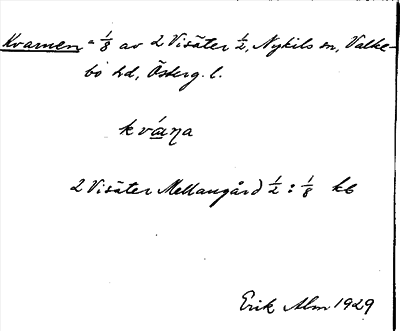 Kvarnen = 1/8 av 2 Visäter 1/2, Nykils sn, Valke-
bo hd, Österg. l.
kvána
2 Visäter Mellangård 1/2 : 1/8 kb
Erik Alm 1929